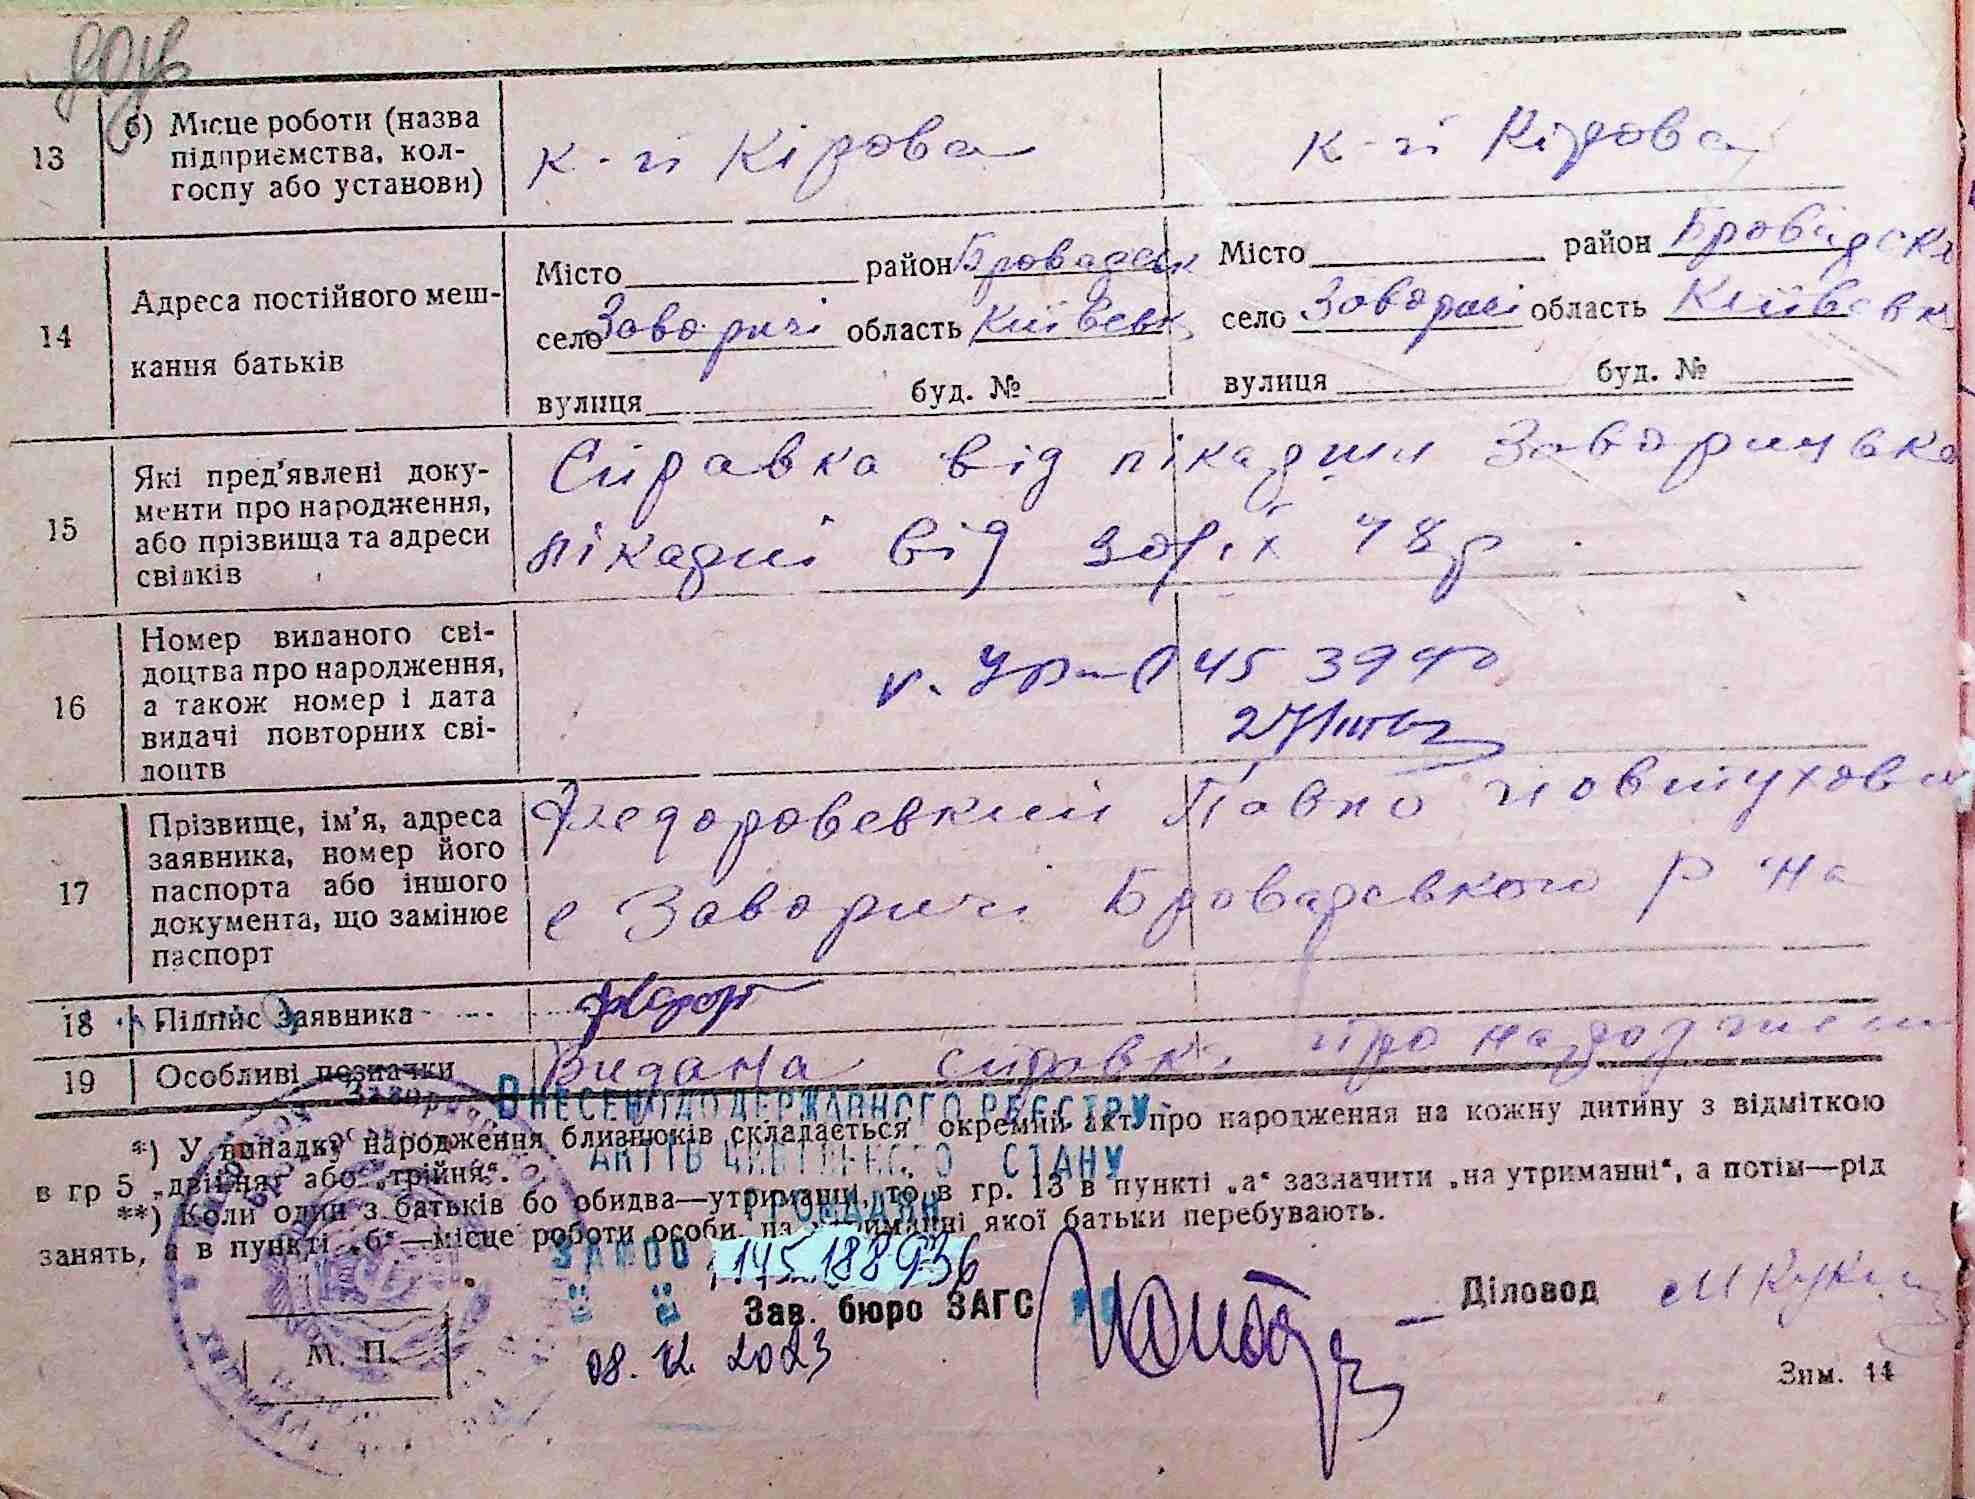 13
б) Місце роботи (назва
підприємства, кол-
госпу або установи)
к-п Кірова
к-п Кірова
14
Адреса постійного меш-
кання батьків
Місто район Броварськ
село Заворичі область Київськ
вулиця буд. №
Місто район Броварськ
село Заворичі область Київськ
вулиця буд. №
15
Які пред'явлені доку-
менти про народження,
або прізвища та адреси
свідків
Справка від лікарши Заворичсько
лікарні від 48 р.
16
Номер виданого сві-
доцтва про народження,
а також номер і дата
видачі повторних сві-
доцтв
17
Прізвище, ім'я, адреса
заявника, номер його
паспорта або іншого
документа, що замінює
паспорт
Федоровський Павло
с Заворичі Броварського р на
18 Підпис заявника
19 Особливі позначки
Видана справка про народження
ВНЕСЕНО ДО ДЕРЖАВНОГО РЕЄСТРУ
АКТІВ ЦИВІЛЬНОГО СТАНУ
ГРОМАДЯН
*) У випадку народження близнюків складається окремий акт про народження на кожну дитину з відміткою
в гр 5 „двійня“ або „трійня“.
**) Коли один з батьків бо обидва—утриманці, то в гр. 13 в пункті „а“ зазначити „на утриманні“, а потім—рід
занять, а в пункті „б“—місце роботи особи, на утриманні якої батьки перебувають.
145188936
Зав. бюро ЗАГС
Діловод
08.12.2023
М. П.
Зим. 14